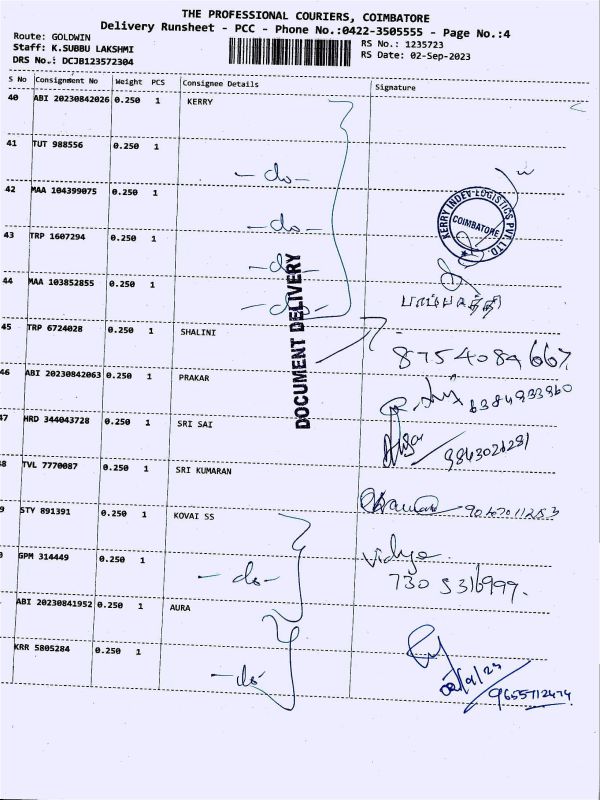 THE PROFESSIONAL COURIERS, COIMBATORE
Delivery Runsheet - PCC - Phone No.:0422-3505555 - Page No.:4
Route: GOLDWIN
Staff: K.SUBBU LAKSHMI
DRS No.: DCJB123572304
RS No.: 1235723
RS Date: 02-Sep-2023
S No Consignment No Weight PCS Consignee Details Signature
40 ABI 20230842026 0.250 1 KERRY
41 TUT 988556 0.250 1
- do -
42 MAA 104399075 0.250 1
- do -
43 TRP 1607294 0.250 1
- do -
44 MAA 103852855 0.250 1
- do -
KERRY INDEV LOGISTICS PVT. LTD.
COIMBATORE
DOCUMENT DELIVERY
45 TRP 6724028 0.250 1 SHALINI
8754084667
46 ABI 20230842063 0.250 1 PRAKAR
6384933960
47 HRD 344043728 0.250 1 SRI SAI
9843026281
48 TVL 7770087 0.250 1 SRI KUMARAN
9 STY 891391 0.250 1 KOVAI SS
Vidya
730 5316999.
GPM 314449 0.250 1
- do -
ABI 20230841952 0.250 1 AURA
KRR 5805284 0.250 1
- do -
9655712474